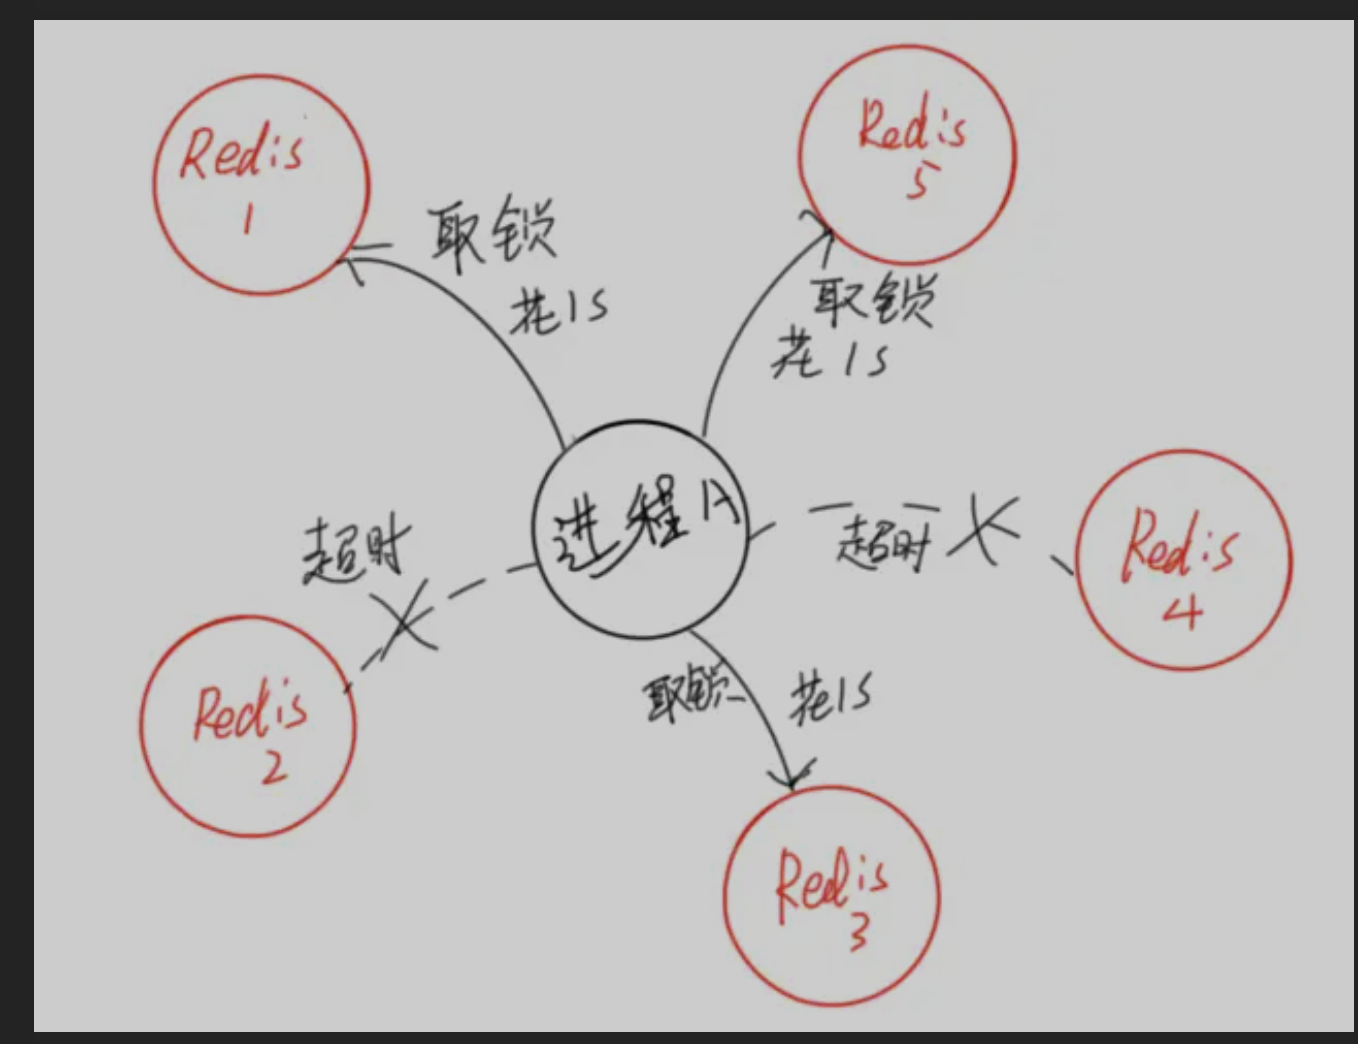 Redis
1
取锁
花1s
Redis
5
取锁
花1s
进程A
超时
Redis
2
超时
Redis
4
取锁
花1s
Redis
3